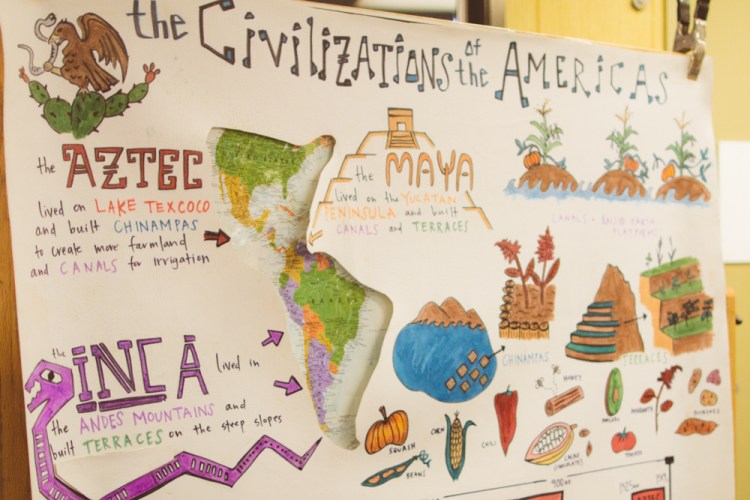 the Civilizations of the Americas
the AZTEC
lived on LAKE TEXCOCO
and built CHINAMPAS
to create more farmland
and CANALS for irrigation
the MAYA
lived on the YUCATAN
PENINSULA and built
CANALS and TERRACES
the INCA lived in
the ANDES MOUNTAINS and
built TERRACES on the steep slopes
CHINAMPAS
TERRACES
SQUASH
CORN
BEANS
CHILI
HONEY
CACAO
(CHOCOLATE)
AVOCADO
TOMATO
AMARANTH
POTATOES